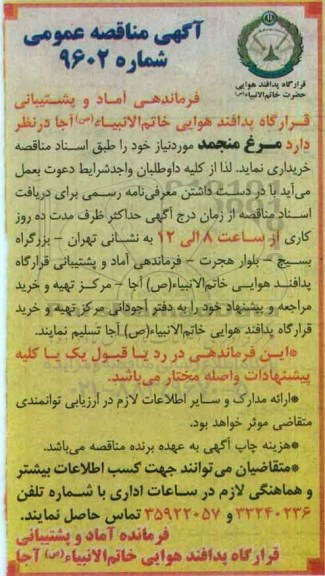 قرارگاه پدافند هوایی
حضرت خاتم‌الانبیاء(ص)
آگهی مناقصه عمومی
شماره ۹۶۰۲
فرماندهی آماد و پشتیبانی
قرارگاه پدافند هوایی خاتم‌الانبیاء(ص) آجا درنظر
دارد مرغ منجمد موردنیاز خود را طبق اسناد مناقصه
خریداری نماید. لذا از کلیه داوطلبان واجدشرایط دعوت بعمل
می‌آید با در دست داشتن معرفی‌نامه رسمی برای دریافت
اسناد مناقصه از زمان درج آگهی حداکثر ظرف مدت ده روز
کاری از ساعت ۸ الی ۱۲ به نشانی تهران – بزرگراه
بسیج – بلوار هجرت – فرماندهی آماد و پشتیبانی قرارگاه
پدافند هوایی خاتم‌الانبیاء(ص) آجا – مرکز تهیه و خرید
مراجعه و پیشنهاد خود را به دفتر آجودانی مرکز تهیه و خرید
قرارگاه پدافند هوایی خاتم‌الانبیاء(ص).آجا تسلیم نمایند.
*این فرماندهی در رد یا قبول یک یا کلیه
پیشنهادات واصله مختار می‌باشد.
*ارائه مدارک و سایر اطلاعات لازم در ارزیابی توانمندی
متقاضی موثر خواهد بود.
*هزینه چاپ آگهی به عهده برنده مناقصه می‌باشد.
*متقاضیان می‌توانند جهت کسب اطلاعات بیشتر
و هماهنگی لازم در ساعات اداری با شماره تلفن
۳۳۲۴۰۲۳۶ و ۳۵۹۲۲۰۵۷ تماس حاصل نمایند.
فرمانده آماد و پشتیبانی
قرارگاه پدافند هوایی خاتم‌الانبیاء(ص) آجا